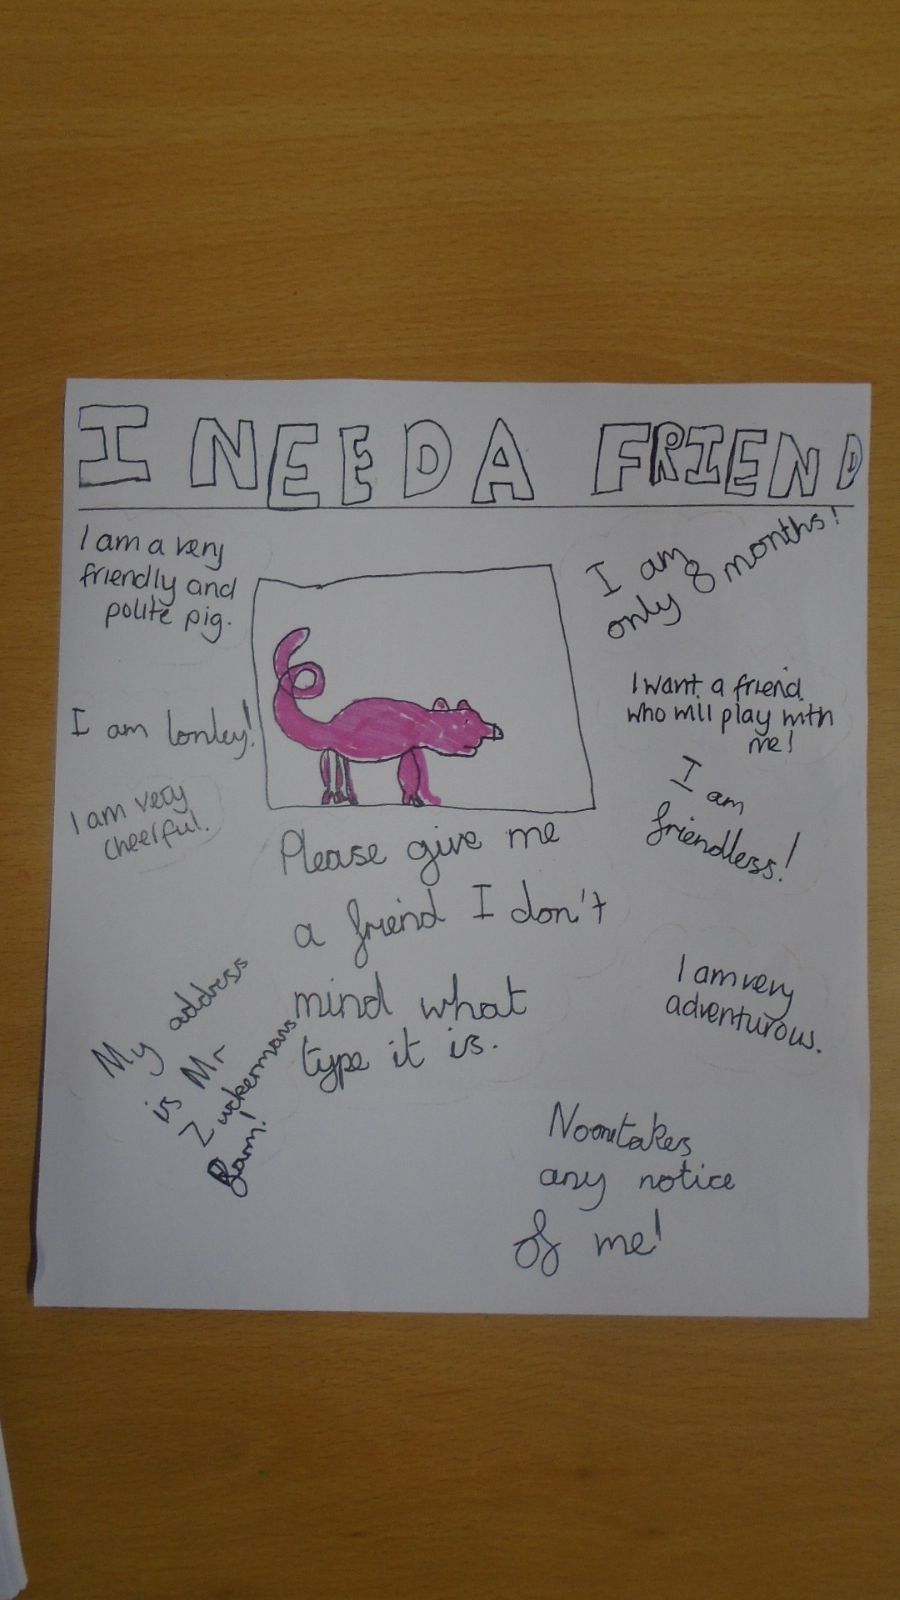 I NEED A FRIEND
I am a very
friendly and
polite pig.
I am lonley!
I am very
cheerful.
I am
only 8 months!
I want a friend
who will play with
me!
I am
friendless!
Please give me
a friend I don't
mind what
type it is.
I am very
adventurous.
My address
is Mr
Zuckermans
farm!
No one takes
any notice
of me!